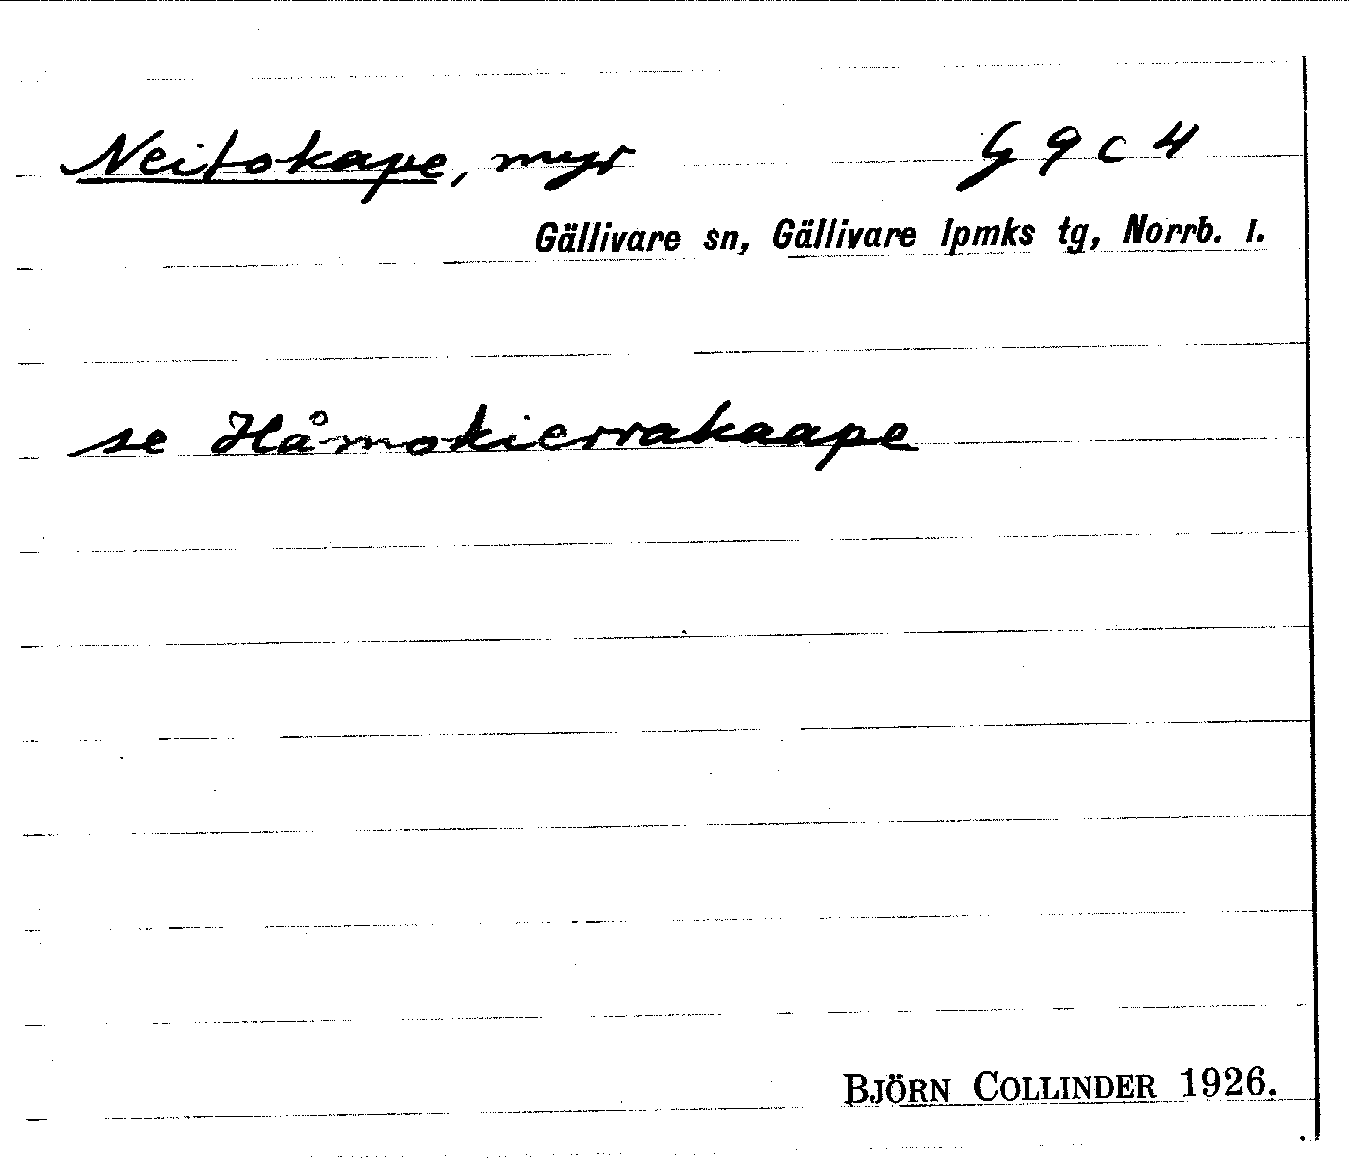 Neitokape, myr G 9 c 4
Gällivare sn, Gällivare lpmks tg, Norrb. l.
se Håmokierrakaape
BJÖRN COLLINDER 1926.